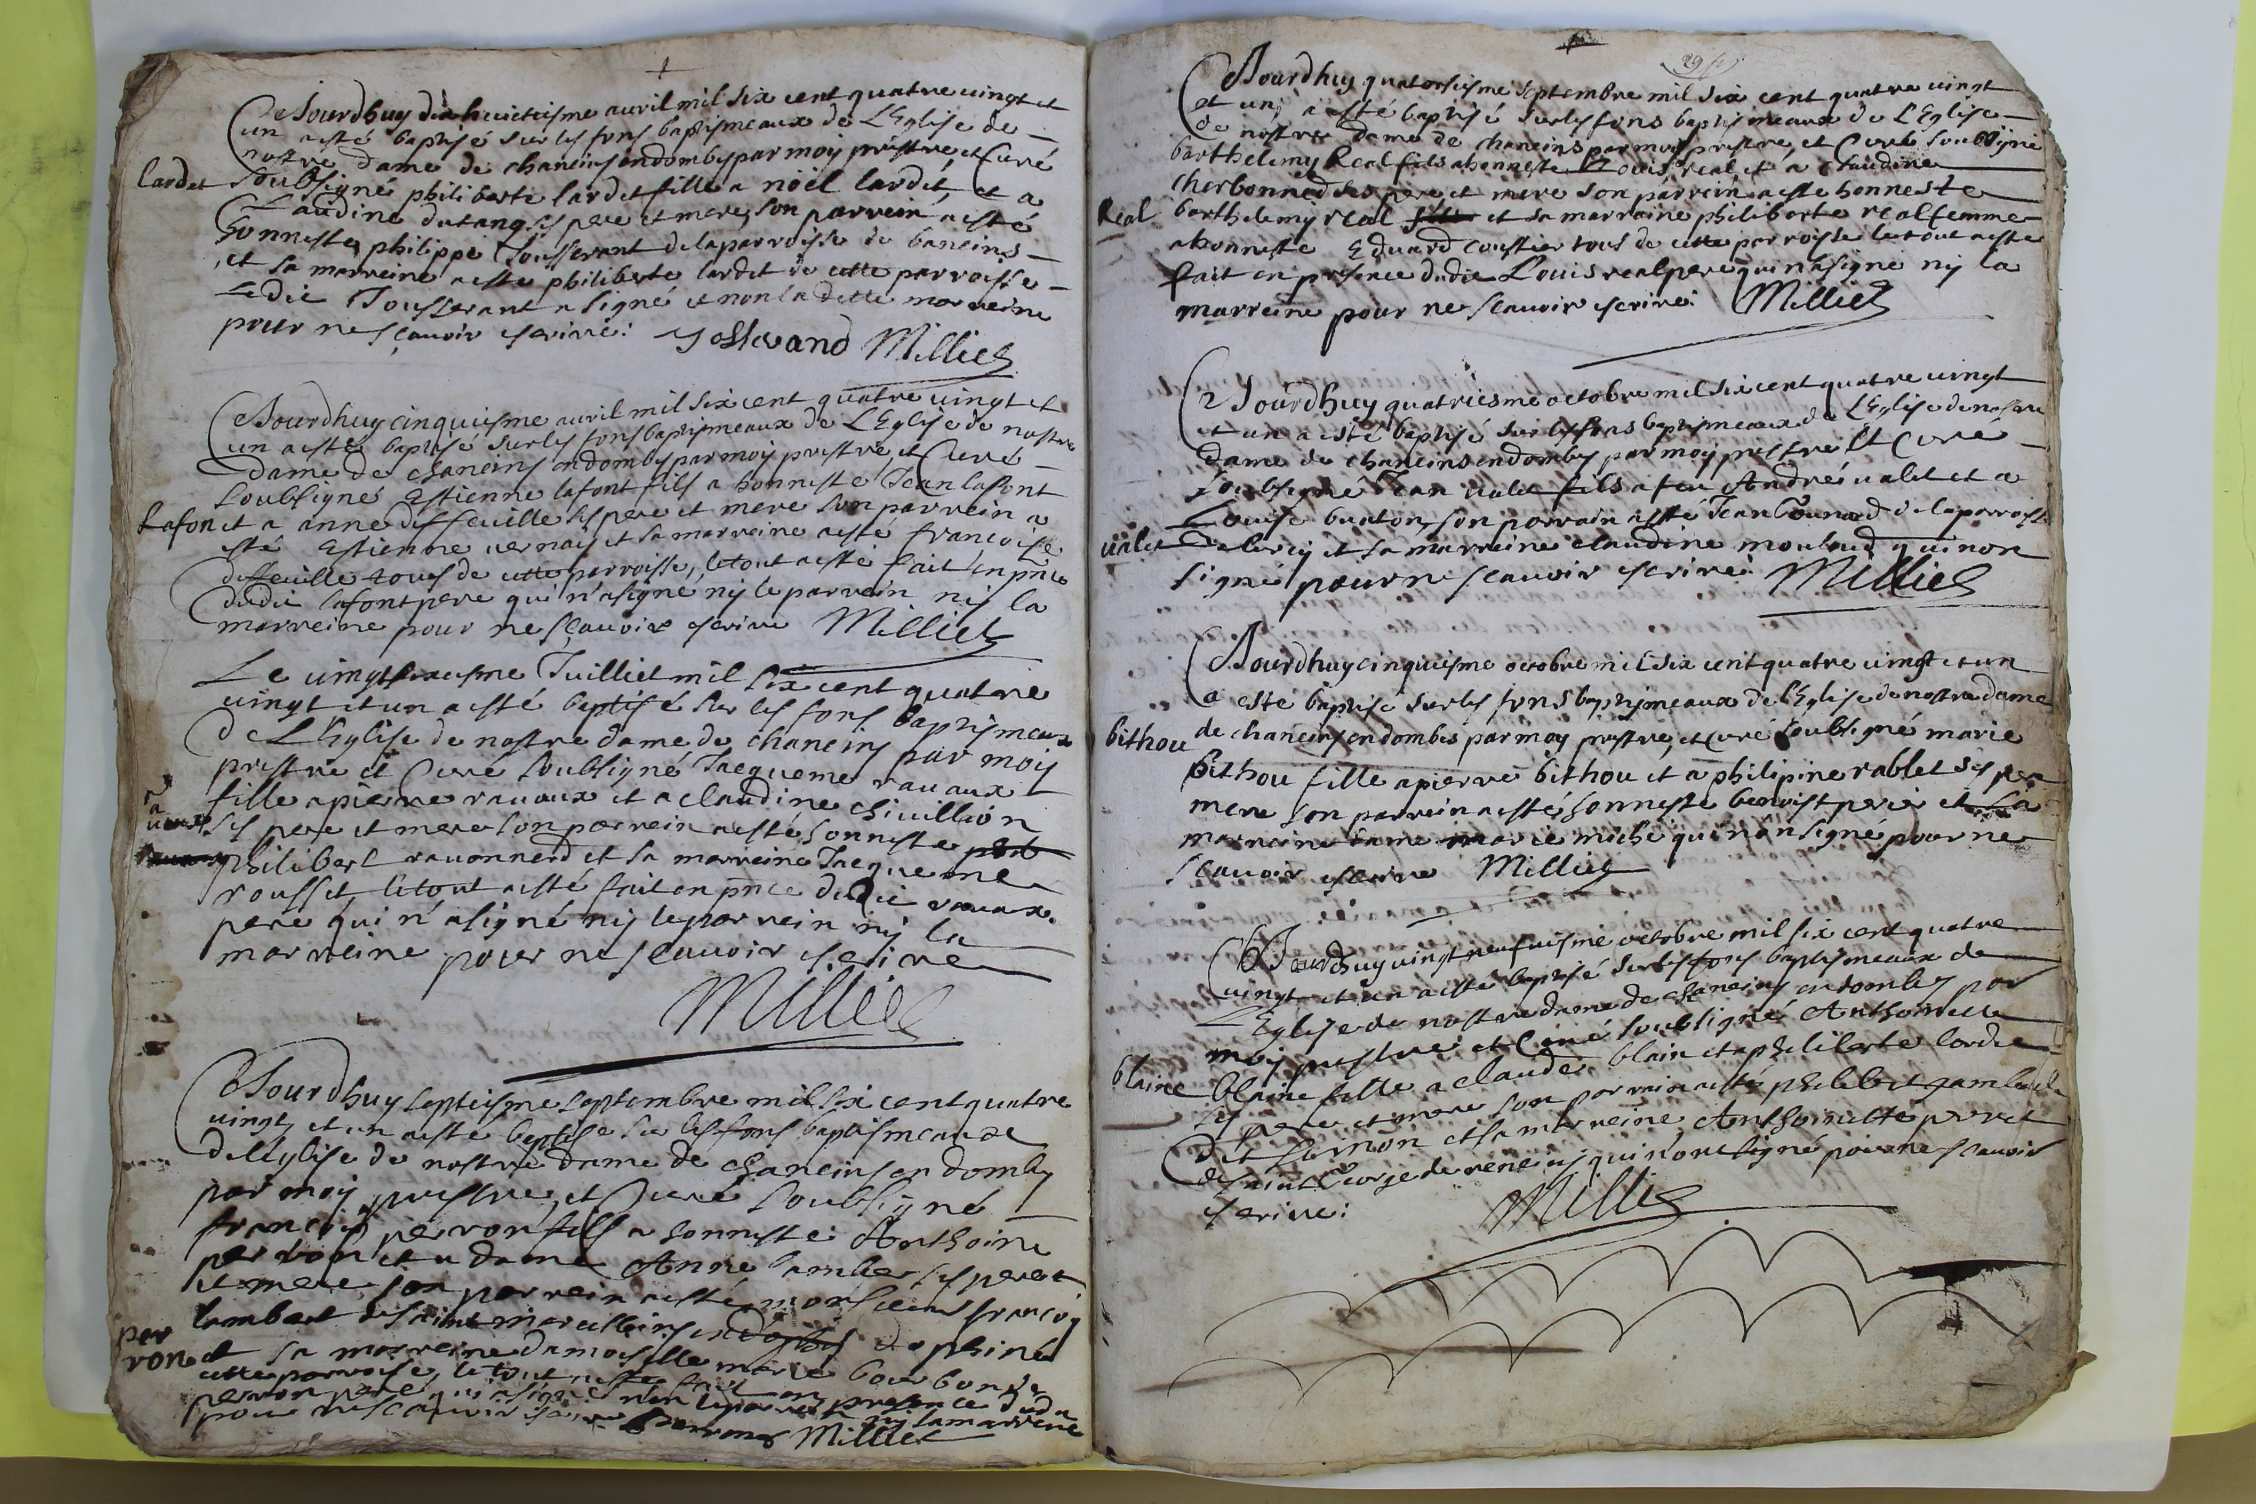 Ce Jourdhuy dix huictiesme auril mil six cent quatre uingt et
un aesté baptisé sur les fons baptismeaux de L'Eglise de
nostre dame de chaneins en dombes par moy prestre et Curé
lardet
soubsigné philiberte lardet fille a nöel lardet et a
Claudine dutang ses pere et mere, son parrein aesté
honneste philippe Jousserant de la parroisse de baneins
et sa marreine aesté philiberte lardet de cette parroisse
Ledit Jousserant a signé et non la ditte marreine
pour ne sçauoir escrire: Josserand Milliet
Ce Jourdhuy cinquiesme auril mil six cent quatre uingt et
un aesté baptisé sur les fons baptismeaux de L'Eglise de nostre
dame de chaneins en dombes par moy prestre et Curé
soubsigné Estienne lafont fils a honneste Jean lafont
Lafon
et a anne deffeuille ses pere et mere son parrein a
esté Estienne uernay et sa marreine aesté françoise
deffeuille tous de cette parroisse, le tout aesté fait en pnce
dudit lafont pere qui n'a signé ny le parrein ny la
marreine pour ne sçauoir escrire Milliet
Le uingt sixiesme Juilliet mil six cent quatre
uingt et un aesté baptisé sur les fons baptismeaux
de L'Eglise de nostre dame de chaneins par moy
prestre et Curé soubsigné Jacqueme rauaux
fille a pierre rauaux et a claudine chiuillion
ra
uaux
ses pere et mere son parrein aesté honneste
philibert rauonnerd et sa marreine Jacqueme
rousset, le tout aesté fait en pnce dudit rauaux
pere qui n'a signé ny le parrein ny la
marreine pour ne scauoir escrire
Milliet
Ce Jourdhuy septiesme septembre mil six cent quatre
uingt et un aesté baptisé sur les fons baptismeaux
de l'église de nostre dame de chaneins en dombes
par moy prestre et Curé soubsigné
françois perron fils a honneste Anthoine
perron et a dame Anne lambert ses pere
et mere son parrein aesté monsieur françois
lambert de saint marcellins en dophiné
per
rone
et sa marreine damoiselle marie bourbon de
cette parroisse, le tout aesté fait en presence dudit
perron pere qui a signé non le parrein ny la marreine
pour ne scauoir escrire perrone Milliet
29
Ce Jourdhuy quatorsiesme septembre mil six cent quatre uingt
et un a esté baptisé sur les fons baptismeaux de L'Eglise
de nostre dame de chaneins par moy prestre et Curé soubsigné
barthelemy Real fils a honneste Louis real et a Claudine
cherbonned ses pere et mere son parrein aesté honneste
Real
barthelemy real et sa marraine philiberte real femme
a honneste Eduard coustier tous de cette parroisse le tout aesté
fait en presence dudit Louis real pere qui n'a signé ny la
marreine pour ne scauoir escrire: Milliet
Ce Jourdhuy quatriesme octobre mil six cent quatre uingt
et un a esté baptisé sur les fons baptismeaux de L'Eglise de nostre
dame de chaneins en dombes par moy prestre Et Curé
soubsigné Jean ualet fils a feu André ualet et a
Louise buaton, son parrain aesté Jean de la parroisse
ualet
de lurcy et sa marreine claudine moulaud qui n'on
signé pour ne scauoir escrire: Milliet
Ce Jourdhuy cinquiesme octobre mil six cent quatre uingt et un
a esté baptisé sur les fons baptismeaux de l'Eglise de nostre dame
bithou
de chaneins en dombes par moy prestre, et Curé soubsigné marie
bithou fille a pierre bithou et a philipine rablet ses pere
mere son parrein aesté honneste benoist perier et sa
marreine dame marie miché qui n'on signé pour ne
scauoir escrire Milliet
Ce Jourdhuy uingt neufuiesme octobre mil six cent quatre
uingt et un aesté baptisé sur les fons baptismeaux de
L'Eglise de nostre dame de chaneins en dombes par
moy prestre et Curé soubsigné Anthoinette
blaine
blaine fille a claude blain et a philiberte lardet
ses pere et mere son parrein aesté philibert
dit et sa marreine Anthoinette perret
de saint George de reneins qui n'ont signé pour ne scauoir
escrire: Milliet